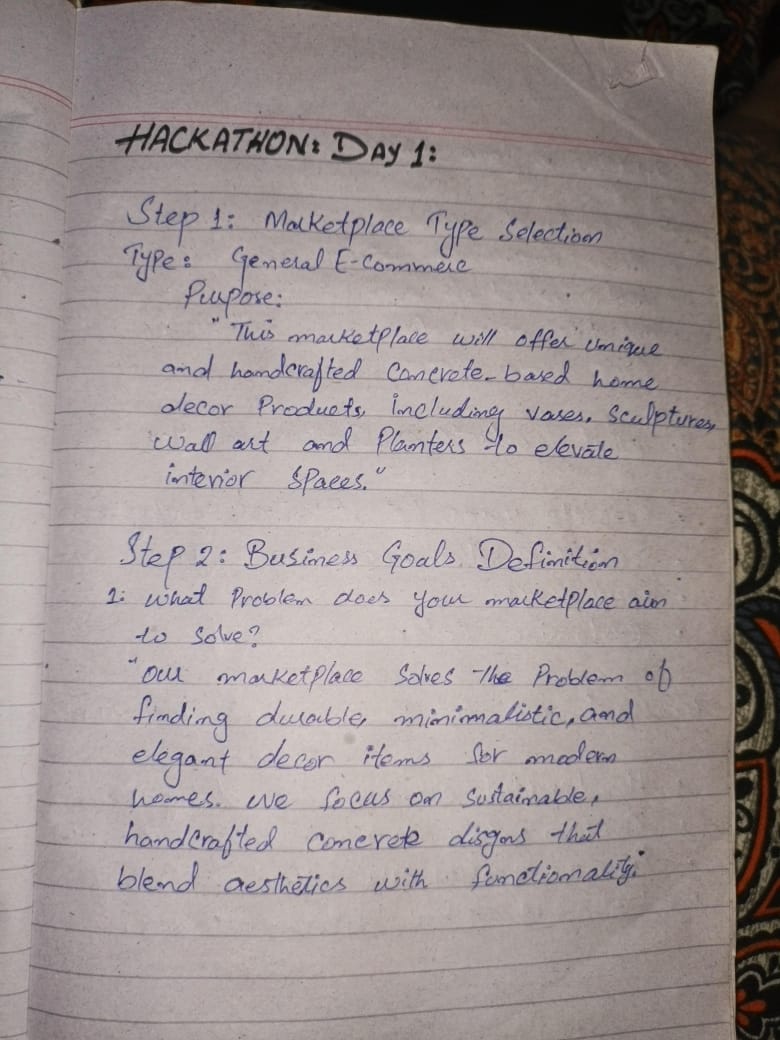 HACKATHON: DAY 1:
Step 1: Marketplace Type Selection
Type: General E-Commerc
Purpose:
"This marketplace will offer unique
and handcrafted Concrete-based home
decor Products, including vases, Sculptures,
wall art and Planters to elevate
interior Spaces."
Step 2: Business Goals Definition
1: what Problem does your marketplace aim
to Solve?
"our marketplace Solves the Problem of
finding durable, minimalistic, and
elegant decor items for modern
homes. we focus on Sustainable,
handcrafted concrete disgns that
blend aesthetics with functionality.